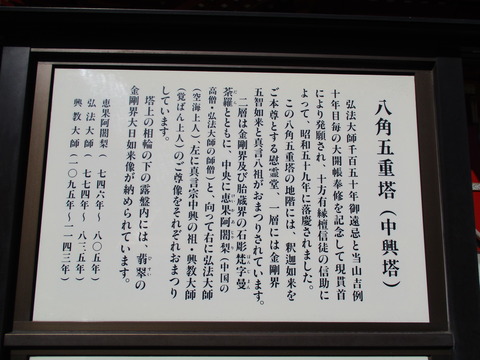 八角五重塔（中興塔）
弘法大師千百五十年御遠忌と当山吉例
十年目毎の大開帳奉修を記念して現貫首
により発願され、十方有縁檀信徒の信助に
よって、昭和五十九年に落慶されました。
この八角五重塔の地階には、釈迦如来を
ご本尊とする慰霊堂、一層には金剛界
五智如来と真言八祖がおまつりされています。
二層は金剛界及び胎蔵界の石彫梵字曼
荼羅とともに、中央に恵果阿闍梨（中国の
高僧・弘法大師の師僧）と、向って右に弘法大師
（空海上人）左に真言宗中興の祖・興教大師
（覚ばん上人）のご尊像をそれぞれおまつり
しています。
塔上の相輪の下の露盤内には、翡翠の
金剛界大日如来像が納められています。
恵果阿闍梨（七四六年～八〇五年）
弘法大師（七七四年～八三五年）
興教大師（一〇九五年～一一四三年）